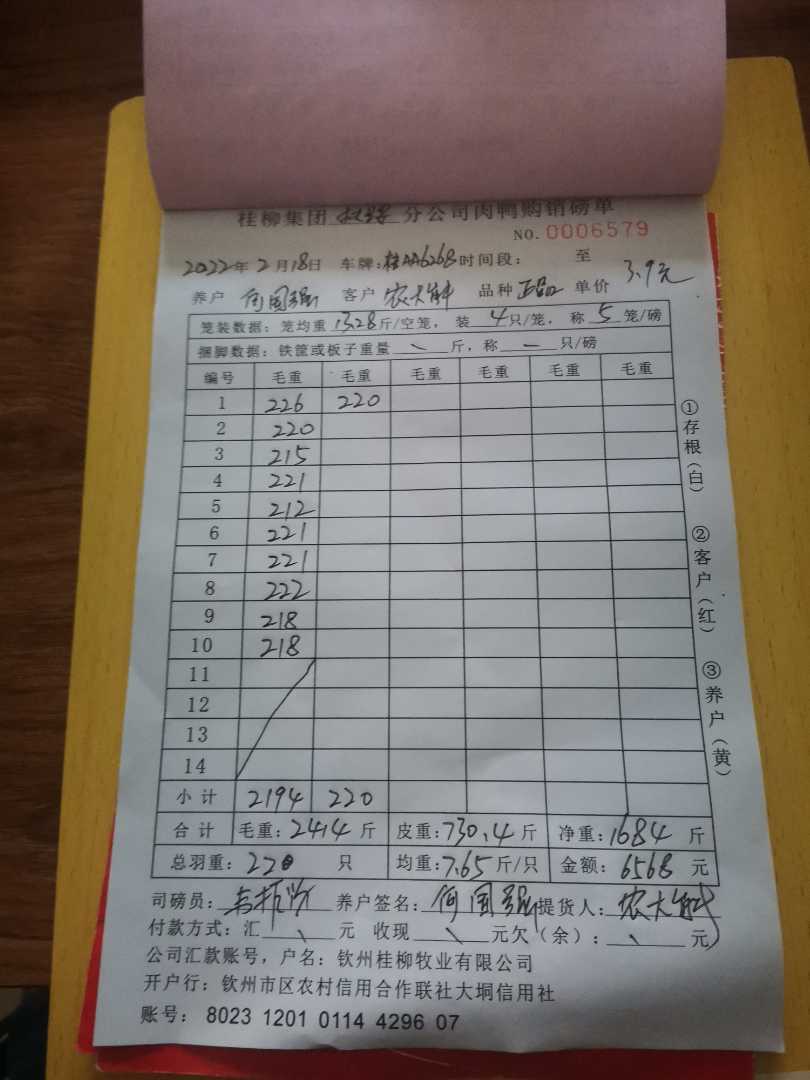 桂柳集团 分公司肉鸭购销磅单
NO. 0006579
2022年2月18日 车牌:桂AA6268 时间段: 至
养户 何国强 客户 农大 品种 正品 单价 3.9元
笼装数据: 笼均重 13.28 斤/空笼, 装 4 只/笼, 称 5 笼/磅
捆脚数据: 铁筐或板子重量 \ 斤, 称 — 只/磅
编号 毛重 毛重 毛重 毛重 毛重 毛重
1 226 220
2 220
3 215
4 221
5 212
6 221
7 221
8 222
9 218
10 218
11
12
13
14
小计 2194 220
合计 毛重: 2414 斤 皮重: 730.4 斤 净重: 1684 斤
总羽重: 220 只 均重: 7.65 斤/只 金额: 6568 元
司磅员: 养户签名: 何国强 提货人: 农大
付款方式: 汇 \ 元 收现 \ 元欠(余): \ 元
公司汇款账号, 户名: 钦州桂柳牧业有限公司
开户行: 钦州市区农村信用合作联社大垌信用社
账号: 8023 1201 0114 4296 07
①存根(白)
②客户(红)
③养户(黄)